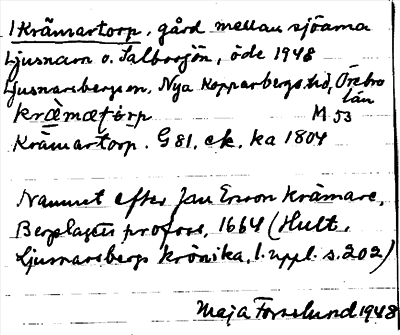 1 Krämartorp, gård mellan sjöarna
Ljusnarn o. Salbosjön, öde 1948
Ljusnarsbergs sn, Nya Kopparbergs hd, Örebro
län
kræ̀mætòrp M 53
Krämartorp. G 81, ek. ka 1804
Namnet efter Jan Ersson Krämare,
Bergslagens profoss, 1664 (Hult,
Ljusnarsbergs krönika, 1. uppl. s. 202)
Maja Forsslund 1948